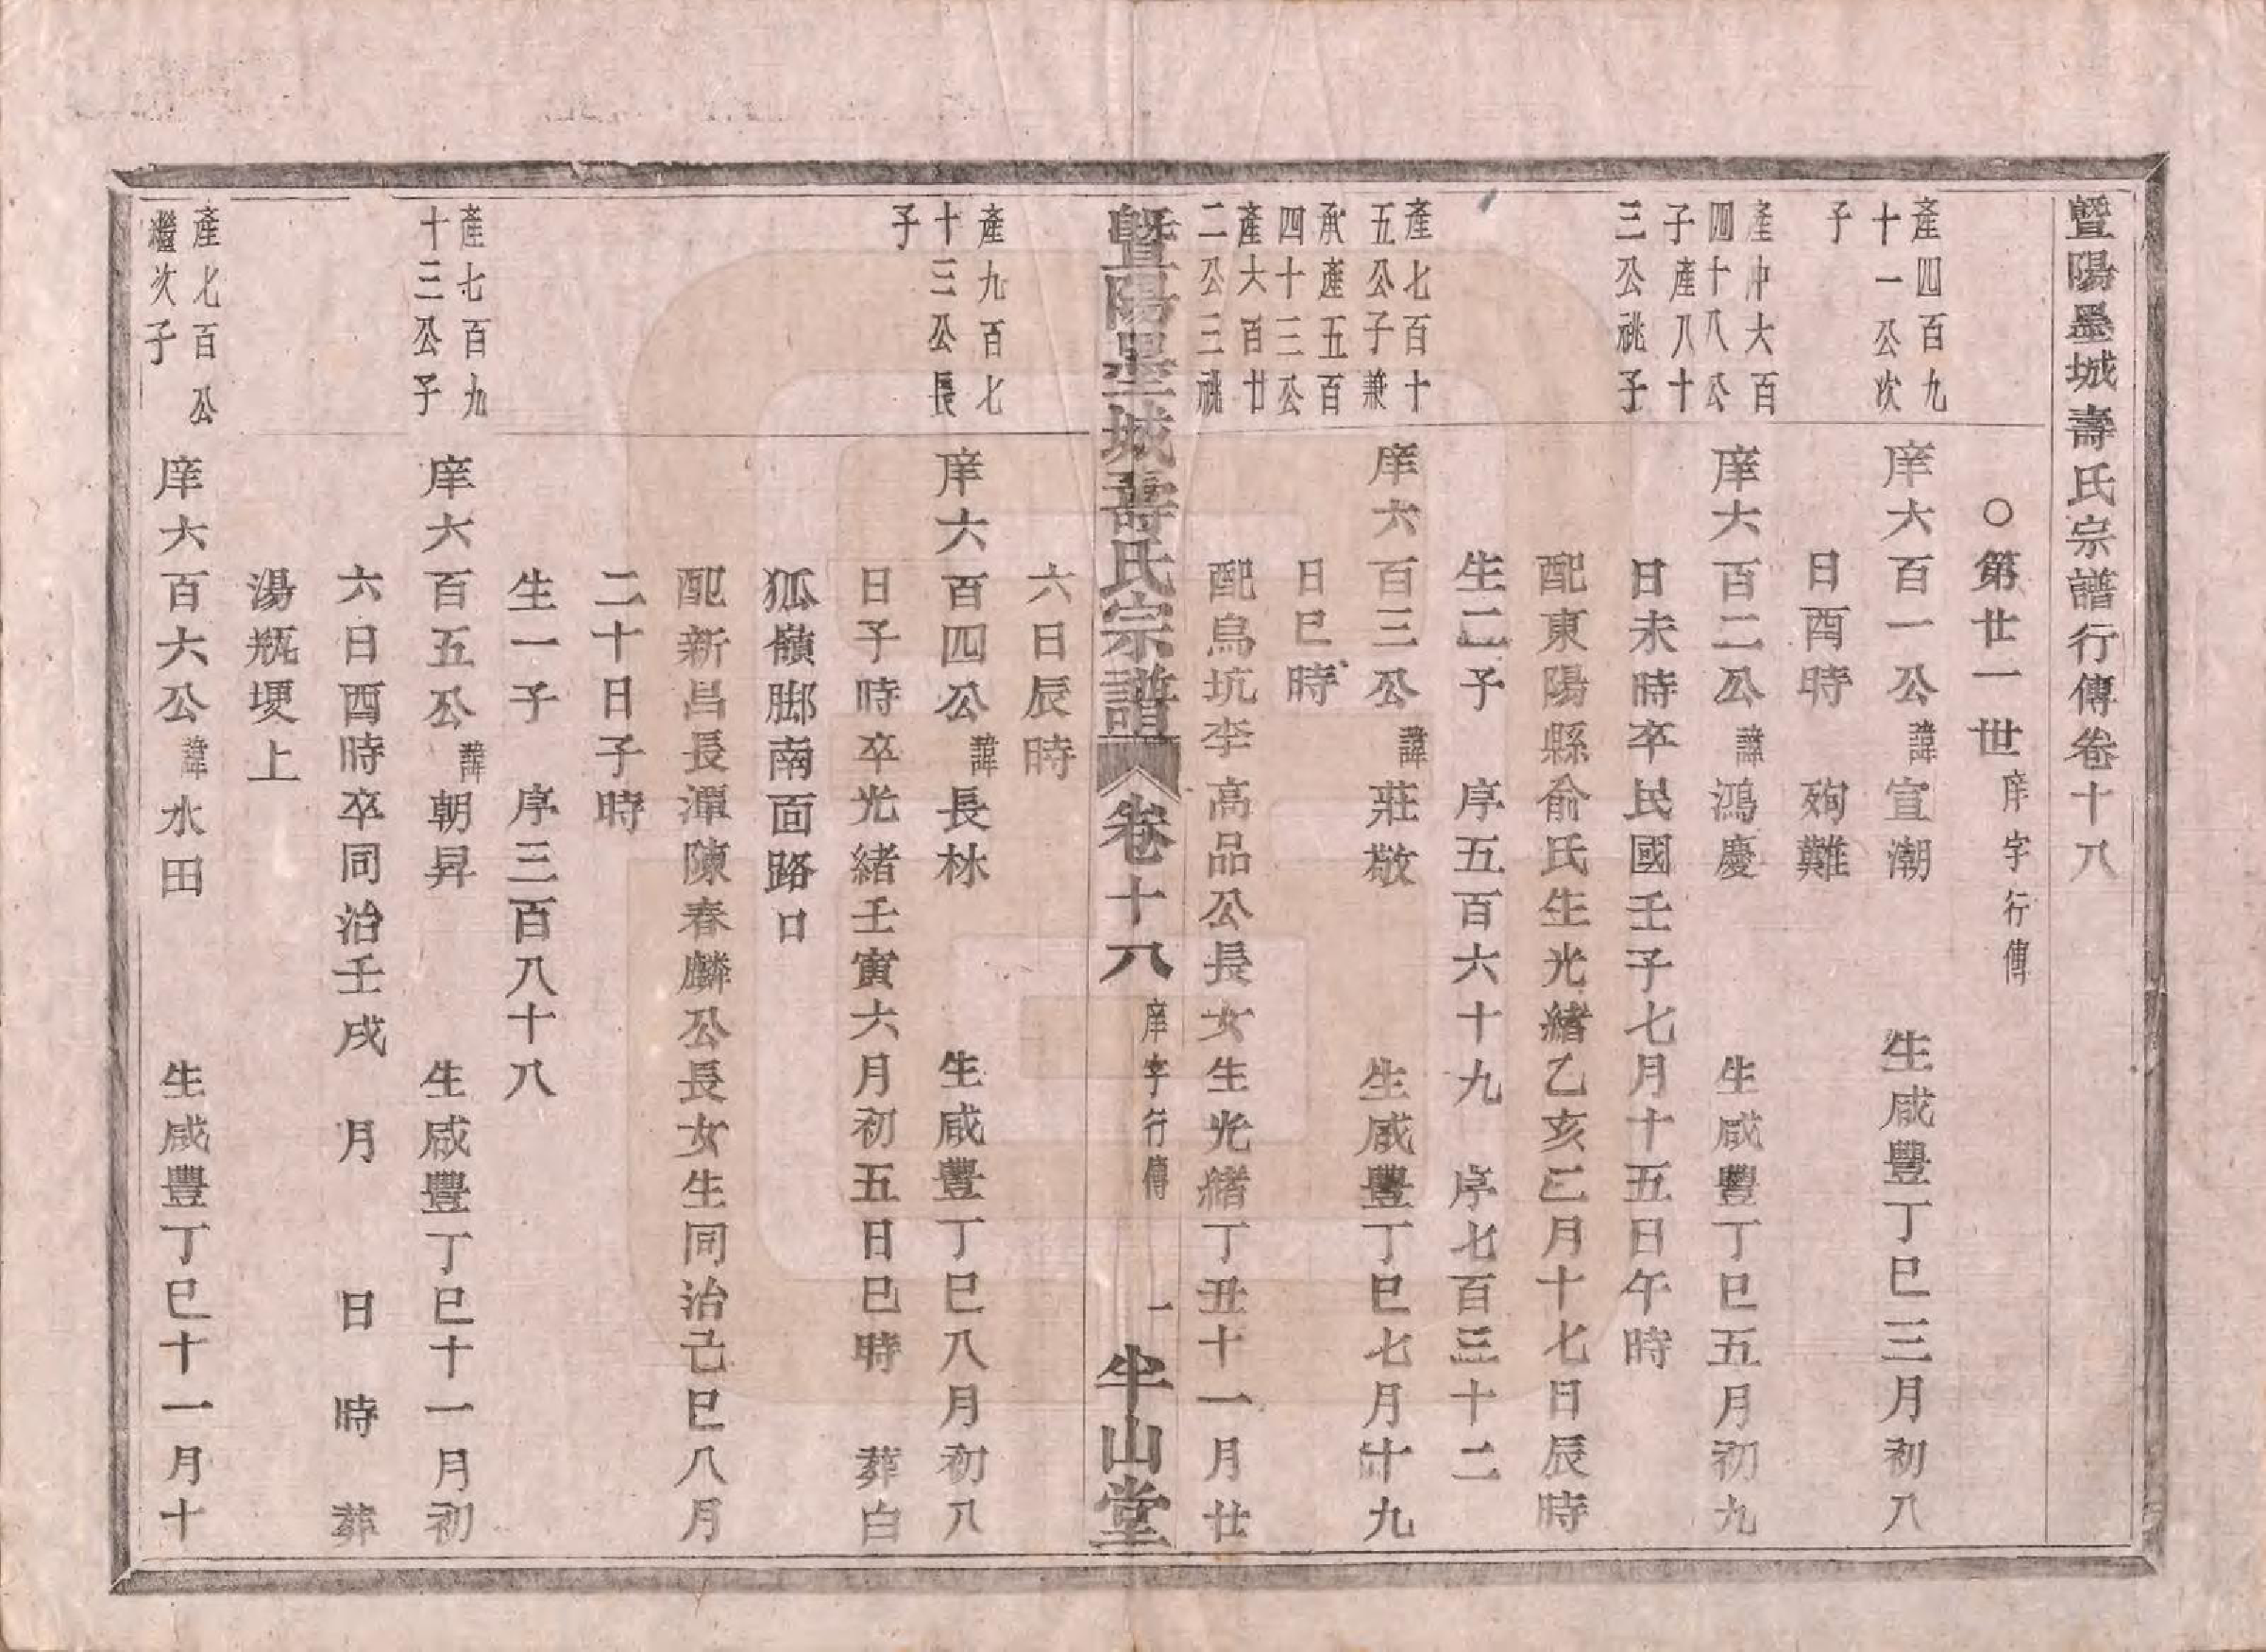 暨陽墨城壽氏宗譜行傳卷十八
○第廿一世 庠字行傳
產四百九
十一公次
子
庠六百一公 諱宣潮 生咸豐丁巳三月初八
日酉時 殉難
產冲大百
四十八公
子產八十
三公祧子
庠六百二公 諱鴻慶 生咸豐丁巳五月初九
日未時卒民國壬子七月十五日午時
配東陽縣俞氏生光緒乙亥二月十七日辰時
生二子 序五百六十九 序七百三十二
產七百十
五公子兼
承產五百
四十三公
產大百廿
二公三祧
庠六百三公 諱莊敬 生咸豐丁巳七月十九
日巳時
配烏坑李高品公長女生光緒丁丑十一月廿
暨陽墨城壽氏宗譜 卷十八 庠字行傳 一 半山堂
六日辰時
產九百七
十三公長
子
庠六百四公 諱長林 生咸豐丁巳八月初八
日子時卒光緒壬寅六月初五日巳時 葬白
狐嶺脚南面路口
配新昌長潭陳春麟公長女生同治己巳八月
二十日子時
生一子 序三百八十八
產七百九
十三公子
庠六百五公 諱朝昇 生咸豐丁巳十一月初
六日酉時卒同治壬戌 月 日 時 葬
湯瓶埂上
產七百公
繼次子
庠六百六公 諱水田 生咸豐丁巳十一月十